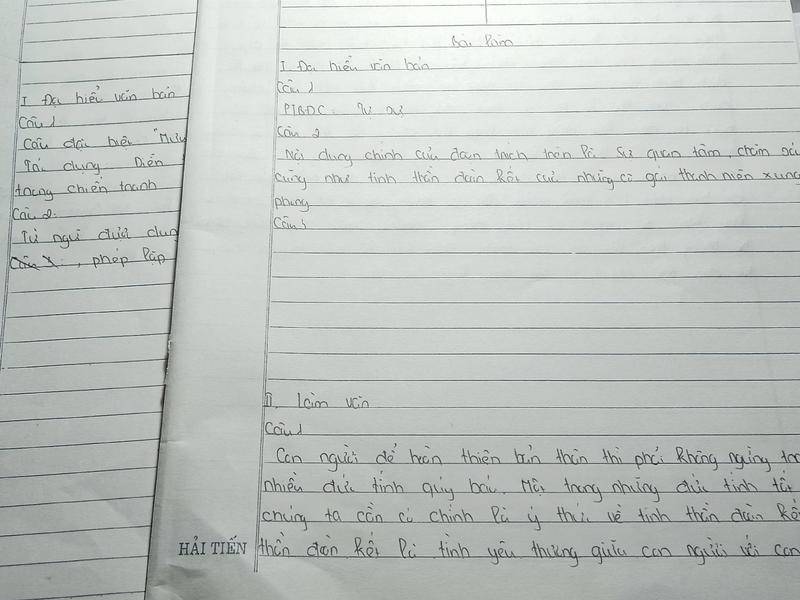 I Đọc hiểu văn bản
Câu 1
Câu đặc biệt "Mưu
Tác dụng Diễn
trong chiến tranh
Câu 2:
Từ ngữ được dùng
, phép lặp
Bài làm
I Đọc hiểu văn bản
Câu 1
PTBĐC: Tự sự
Câu 2
Nội dung chính của đoạn trích trên là Sự quan tâm, chăm sóc
cũng như tinh thần đoàn kết của những cô gái thanh niên xung
phong
Câu 3
II. Làm văn
Câu 1
Con người để hoàn thiện bản thân thì phải không ngừng
nhiều đức tính quý báu. Một trong những đức tính tốt
chúng ta cần có chính là ý thức về tinh thần đoàn kết
thần đoàn kết là tình yêu thương giữa con người với con
HẢI TIẾN